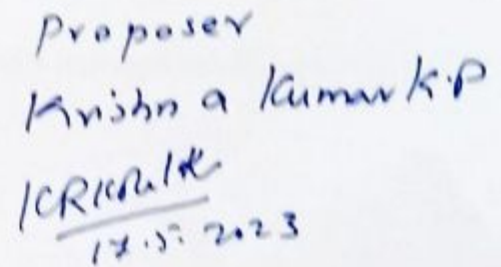 Proposer
Krishna Kumar K.P
17.5.2023